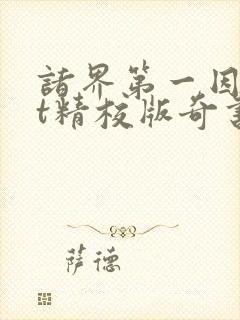 諸界第一因
t精校版奇書
萨德